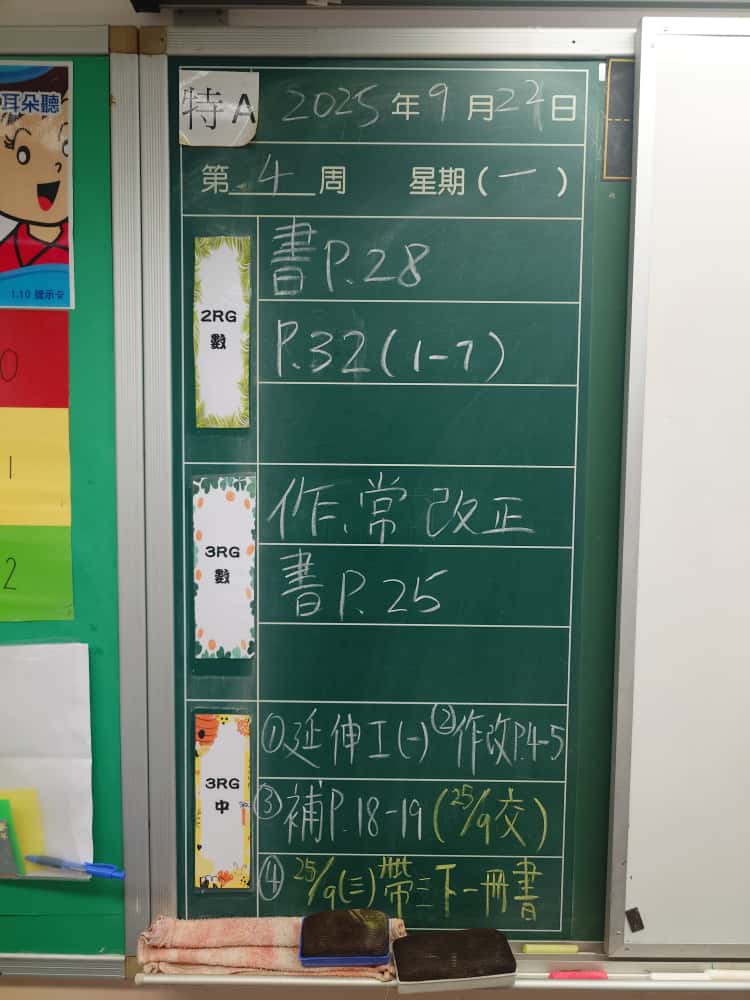 耳朵聽
1.10 提示卡
0
1
2
特A 2025年9月22日
第4周 星期(一)
2RG
數
書P.28
P.32(1-7)
3RG
數
作、常改正
書P.25
3RG
中
①延伸工(一) ②作改P.4-5
③補P.18-19(25/9交)
④25/9(三)帶三下一冊書